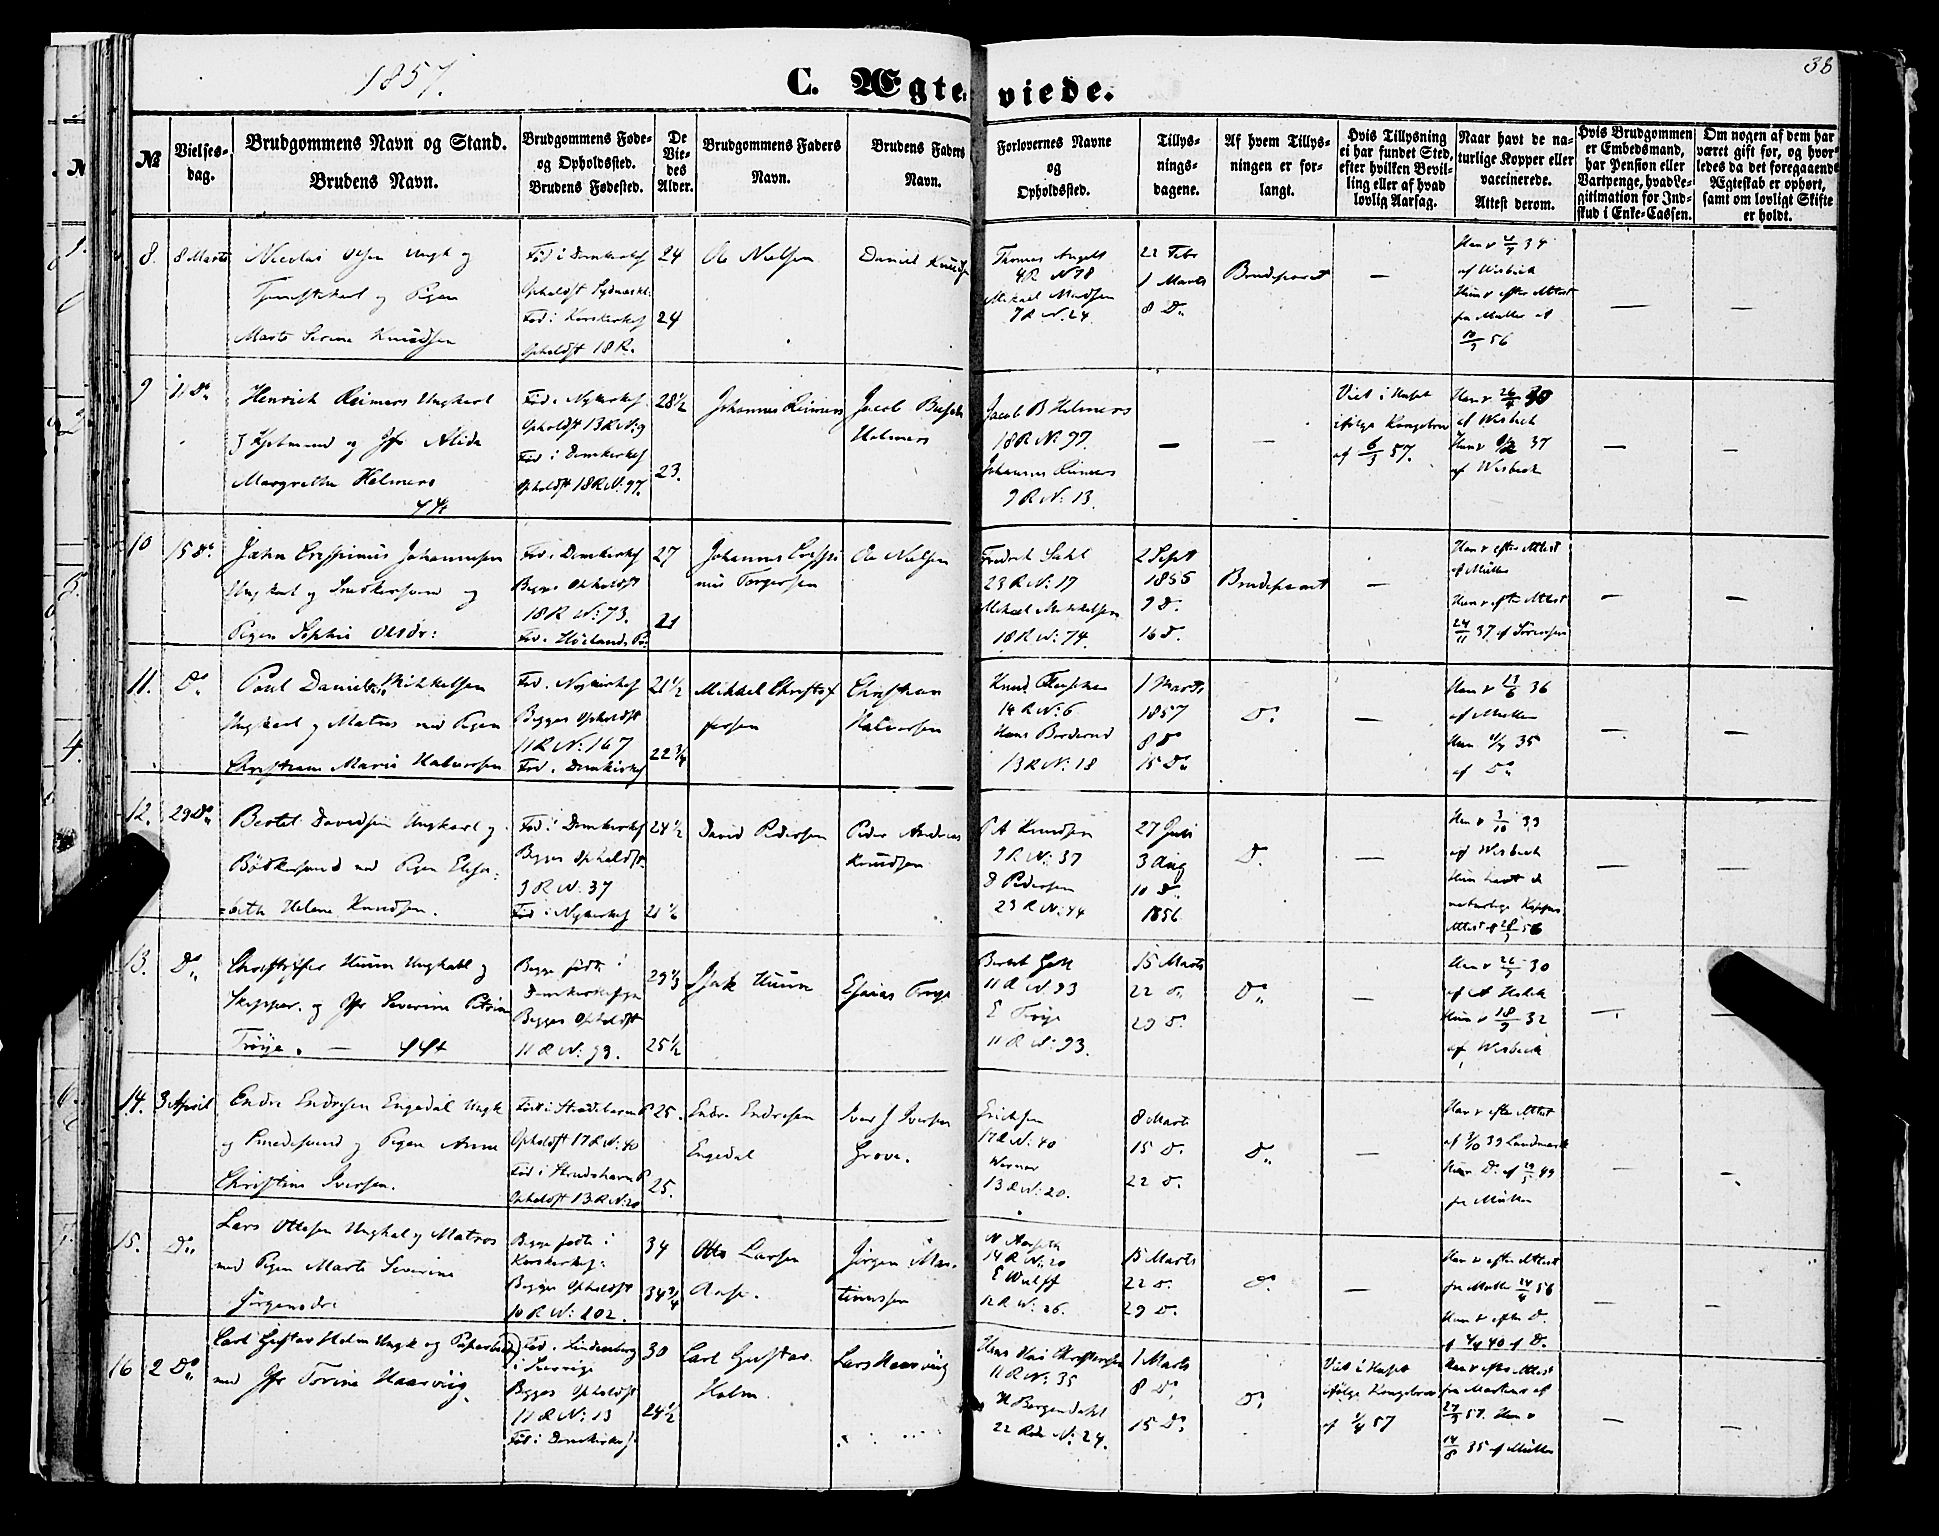 1857.
C. Ægteviede.
38
№
Vielsesdag.
Brudgommens Navn og Stand.
Brudens Navn.
Brudgommens Føde- og Opholdssted.
Brudens Fødested.
De Viedes Alder.
Brudgommens Faders Navn.
Brudens Faders Navn.
Forlovernes Navne og Opholdssted.
Tillysningsdagene.
Af hvem Tillysningen er forlangt.
Hvis Tillysning ei har fundet Sted, efter hvilken Bevilling eller af hvad lovlig Aarsag.
Naar havt de naturlige Kopper eller vaccinerede.
Attest derom.
Hvis Brudgommen er Embedsmand, har Pension eller Vartpenge, hvad Legitimation for Indskud i Enke-Cassen.
Om nogen af dem har været gift før, og hvorledes da det foregaaende Ægteskab er ophørt, samt om lovligt Skifte er holdt.
8. 8 Marts
Nicolai Olsen Ungk og
Tjenestekarl og Pigen
Marte Serine Knudsen
Fød i Domkirkes
Fød i Korskirkes
Opholdst 18 R.
24
24
Ole Nielsen
Daniel Knudsen
Thomas Angell
4 R N 78
Mikael Madsen
7 R N: 24
22 Febr
1 Marts
8 D.
Brudeparret
—
af Wisbech
Hun v efter Attest
fra Müller af
56
—
—
9 11 D.
Henrich Reimers Ungkarl
og Kjøbmand og Jfr Alida
Margrethe Helmers
Fød i Nykirkes
Opholdst 13 R N: 9
Fød i Domkirkes
Opholdst 18 R N: 97.
28½
23.
Johannes Reimers
Jacob
Helmers
Jacob B Helmers
18 R N: 97
Johannes Reimers
9 R N: 13
—
—
Viet i Huset
ifølge Kongebrev
af 6/3 57.
af Wisbech
37
af Wisbech
—
—
10 15 D.
Jahn Crispinus Johannessen
Ungkarl og Snedkersvend og
Pigen Sophie Olsdr:
Fød i Domkirkes
Begges Opholdst
18 R N: 73.
27
21
Johannes Crispi
nus Torgersen
Ole Nielsen
Fredrik Dahl
23 R N: 17
Michael Mikkelsen
18 R N: 74.
2 Sept
1855
9 D.
16 D.
Brudeparret
—
Han v efter Attest
af Müller
Hun v efter Attest
24/11 37 af Sörensen
—
—
11. D.
Poul Daniel Mikkelsen
Ungkarl og Matros med Pigen
Christiane Marie Halvorsen
Fød i Nykirkes
Begges Opholdst
11 R N: 167
Fød i Domkirkes
21½
22¾
Mikkel Christof
fersen
Christian
Halvorsen
14 R N: 6
13 R N: 18
1 Marts
1857
8 D.
15 D.
D.
—
Han v 13/6 36
af Müller
Hun 35
af D.
—
—
12. 29 D.
Bertel Davidsen Ungkarl og
Bødkersvend med Pigen Elisa=
=beth Helene Knudsen.
Fød i Domkirkes
Begges Opholdst
9 R N: 37
Fød i Nykirkes
24½
David Pedersen
Peder Andreas
Knudsen
P A Knudsen
9 R N: 37
D Pedersen
23 R N: 44
27 Juli
3 Aug
10 D.
1856
D.
—
Han v 3/10 33
af Wisbech
Hun havt de
naturlige Kopper
—
—
13. D.
Christofer Huun Ungkarl og
Skipper og Jfr Severine Petrine
Trøye. —
Begge fødte i
Domkirkesogn
Begges Opholdst
11 R N: 93.
29⅓
25½
Isak Huun
Esaias Trøye
11 R N: 93
E Trøye
11 R N: 93.
15 Marts
22 D.
29 D.
D.
—
30
Hun v 18/9 32
af Wisbech
—
—
14. 3 April
Endre Endresen Engedal Ungk
og Smedesvend og Pigen Anne
Christine Iversen.
Opholdst 17 R N: 40
Opholdst 13 R N: 20
25.
25.
Endre Endresen
Engedal
Iver J Iversen
Grove.
Erichsen
17 R N: 40
Werner
13 R N: 20.
8 Marts
15 D.
22 D.
D.
—
Han v efter Attest
fra Müller
—
—
15. D.
Lars Ottesen Ungkal og Matros
med Pigen Marte Severine
Jörgensdr
Begge fødte i
Korskirkes:
Begges Opholdst
10 R N: 102.
34
34¾
Otto Larsen
Jørgen Mar-
tinussen
14 R N: 20
E Wulff
12 R N: 26.
15 Marts
22 D.
29 D.
D.
—
Han v efter Attest
fra Müller 56
Hun v efter D.
—
—
16 2 D.
Carl Gustav Holm Ungk og
med Jfr Torine Haarviig.
i Sverrige
Begges Opholdst
11 R N: 13
Fød i Domkirkes:
30
24½
Carl Gustav
Holm.
Lars Haarviig
11 R N: 35
H Bergendahl
22 Rode N: 24.
1 Marts
8 D.
15 D.
D.
Viet i Huset
ifølge Kongebrev
57
Han v efter Attest
fra Martens af
57. Hun v
14/8 35 af Müller
—
—